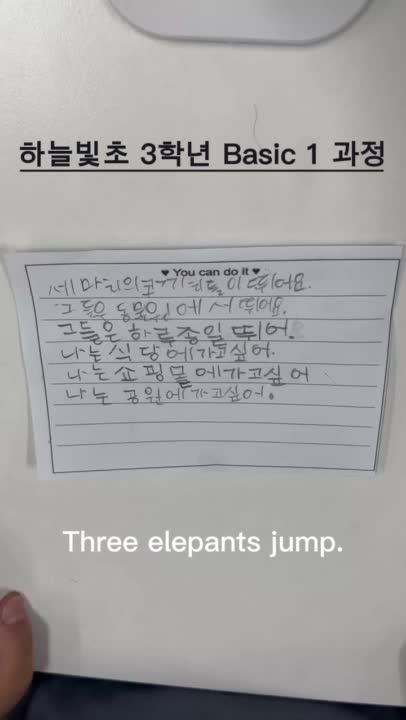 하늘빛초 3학년 Basic 1 과정
♥ You can do it ♥
세 마리의코끼리들이 뛰어요.
그들은 동물원에서 뛰어요.
그들은 하루종일 뛰어.
나는 식당에가고싶어.
나는 쇼핑몰에가고싶어
나는 공원에가고싶어.
Three elepants jump.